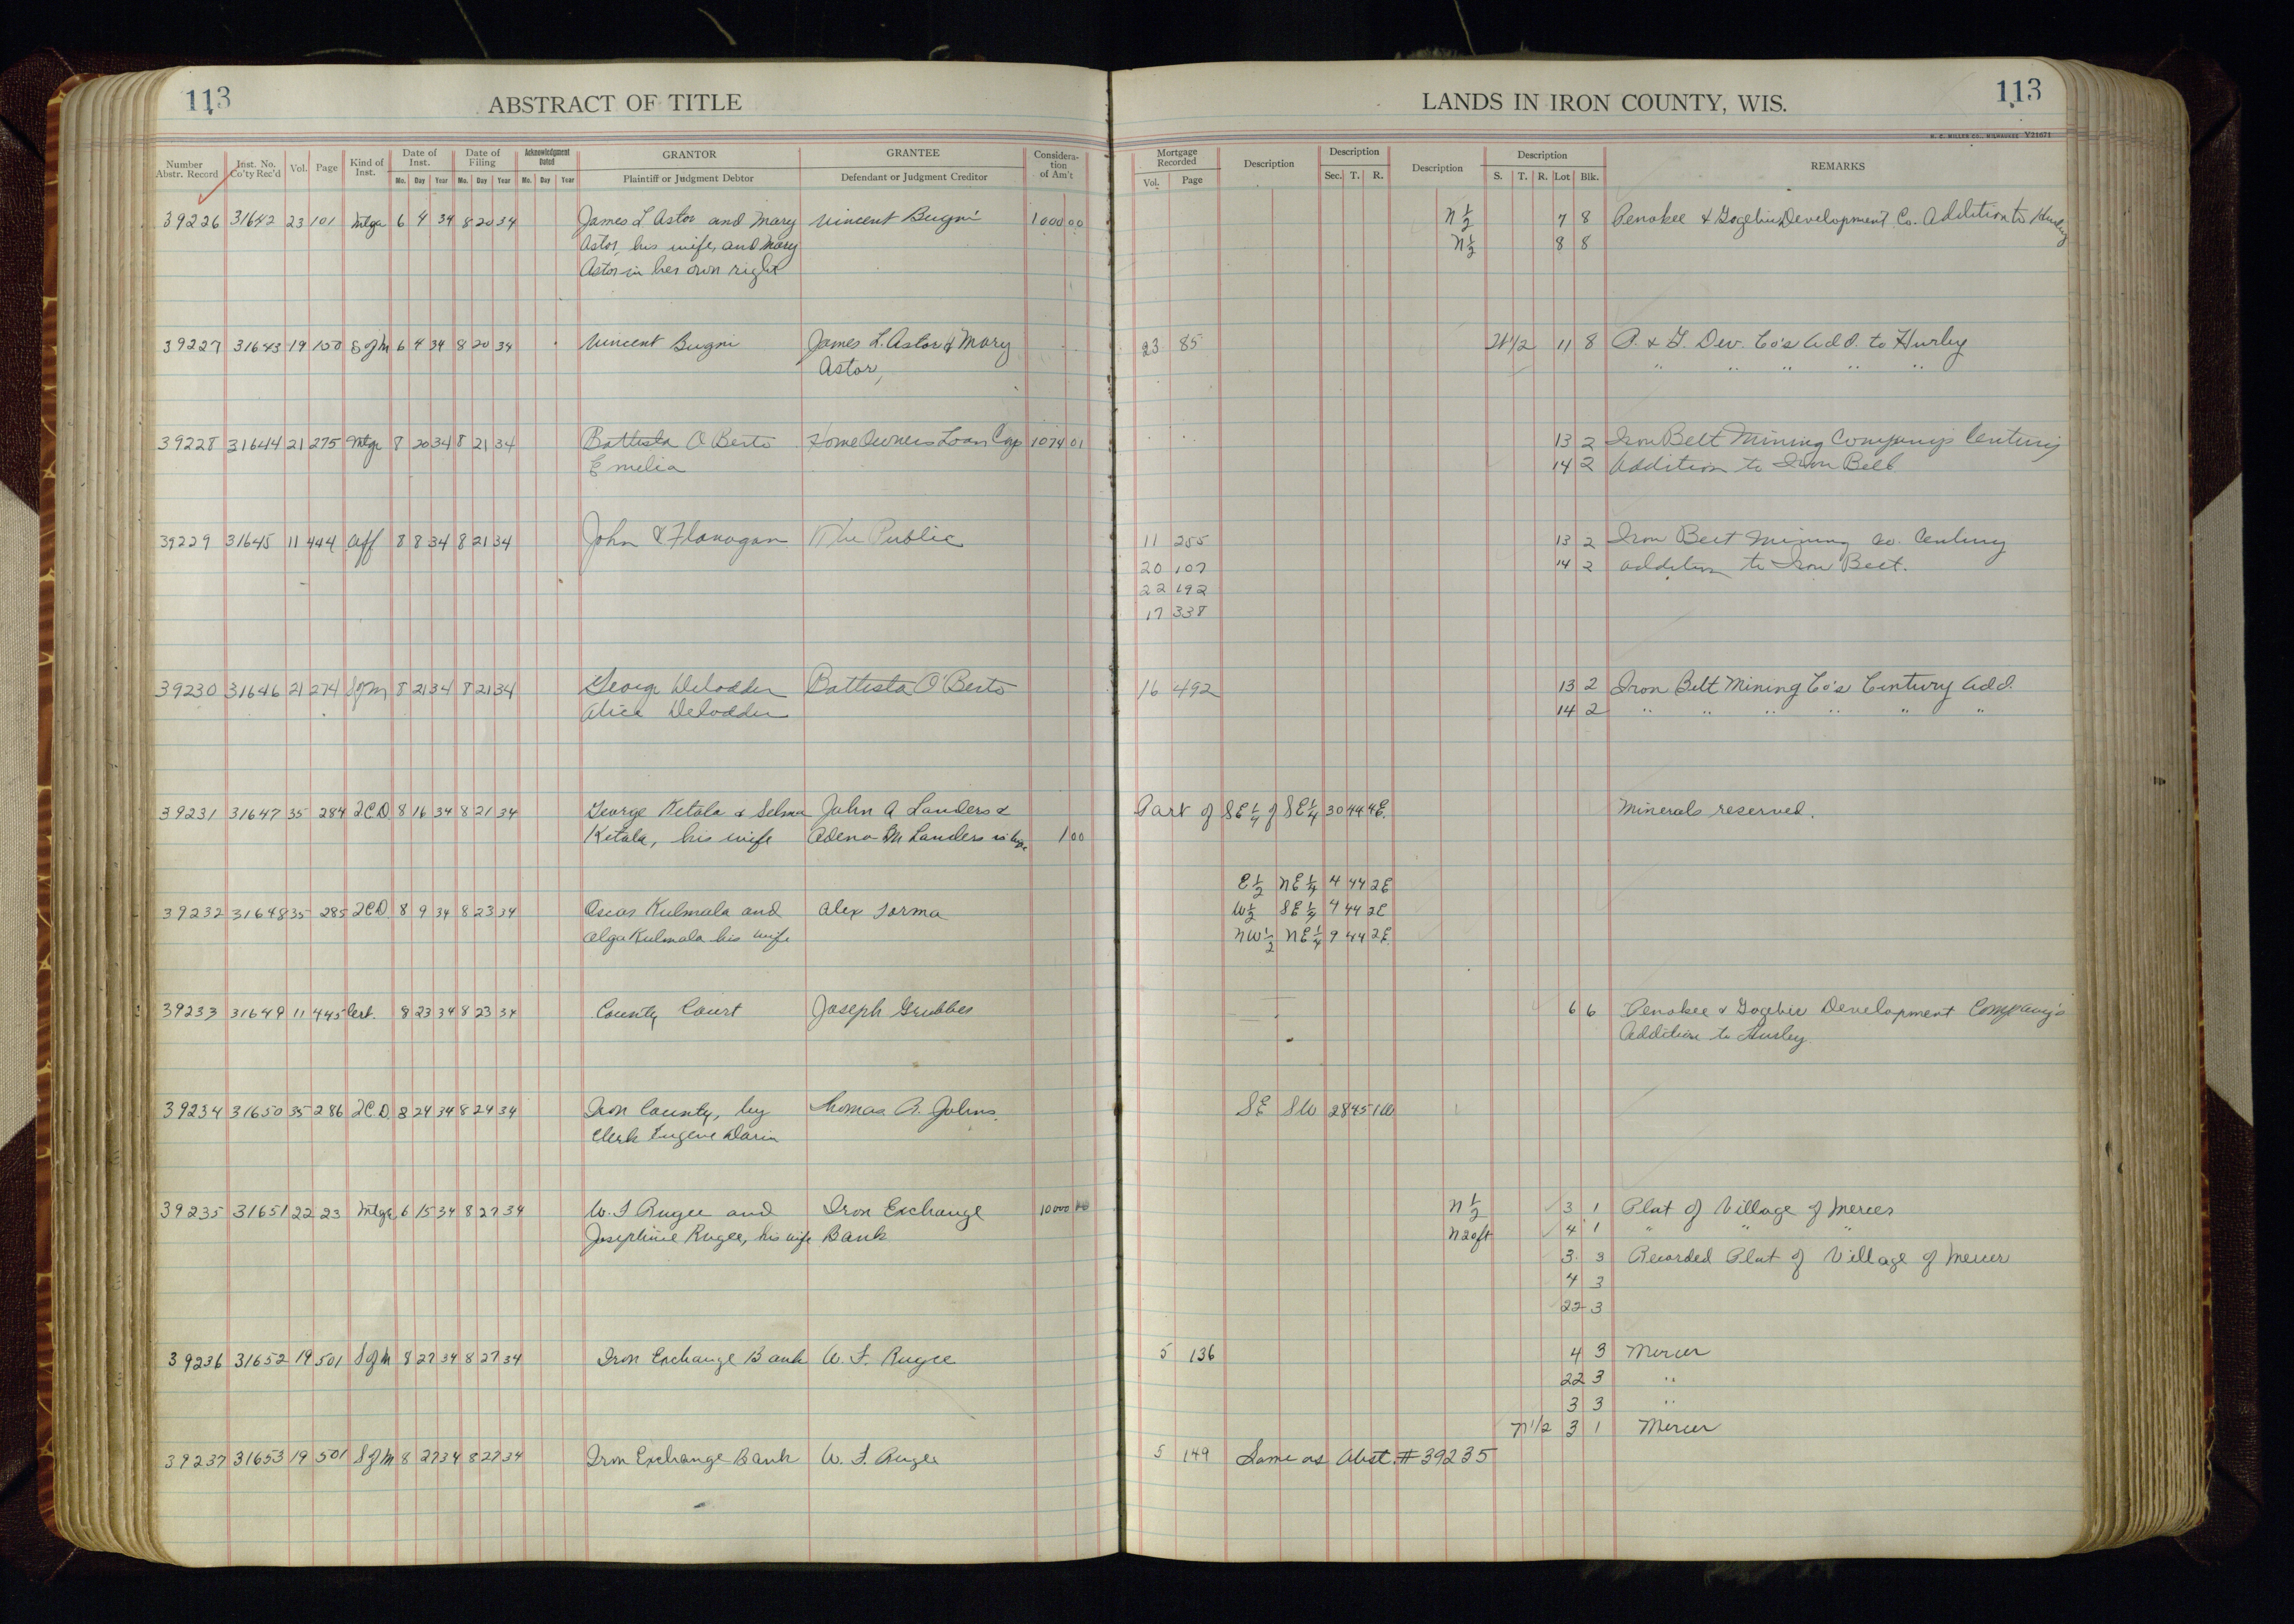 113
ABSTRACT OF TITLE
LANDS IN IRON COUNTY, WIS.
113
H. C. MILLER CO., MILWAUKEE Y21671
Number Abstr. Record Inst. No. Co'ty Rec'd Vol. Page Kind of Inst. Date of Inst. Mo. Day Year Date of Filing Mo. Day Year Acknowledgment Dated Mo. Day Year GRANTOR Plaintiff or Judgment Debtor GRANTEE Defendant or Judgment Creditor Considera-tion of Am't
Mortgage Recorded Vol. Page Description Description Sec. T. R. Description Description S. T. R. Lot Blk. REMARKS
39226 31642 23 101 Mtge 6 4 34 8 20 34 James L Astor and Mary Vincent Bugni 1000 00 N 1/2 7 8 Penokee & Gogebic Development Co. Addition to Hurley
Astor, his wife, and Mary N 1/2 8 8
Astor in her own right
39227 31643 19 150 S of M 6 4 34 8 20 34 Vincent Bugni James L. Astor & Mary 23 85 11 8 P. & G. Dev. Co's Add. to Hurley
Astor, " " " " "
39228 31644 21 275 Mtge 8 20 34 8 21 34 Battista O Berto Home Owners Loan Corp 1074 01 13 2 Iron Belt Mining Company's Century
Emelia 14 2 Addition to Iron Belt
39229 31645 11 444 Aff 8 8 34 8 21 34 John & Flanagan The Public 11 255 13 2 Iron Belt Mining Co. Century
20 107 14 2 addition to Iron Belt.
22 192
17 338
39230 31646 21 274 S of M 8 21 34 8 21 34 George DeLodder Battista O'Berto 16 492 13 2 Iron Belt Mining Co's Century Add.
Alice DeLodder 14 2 " " " " " "
39231 31647 35 284 2CD 8 16 34 8 21 34 George Ketola & Selma John A Landers & Part of SE 1/4 of SE 1/4 30 44 4E. Minerals reserved.
Ketola, his wife Adena M Landers 1 00
E 1/2 NE 1/4 4 44 2E
39232 31648 35 285 2CD 8 9 34 8 23 34 Oscar Kulmala and Alex Sorma W 1/2 SE 1/4 4 44 2E
Olga Kulmala his wife NW 1/2 NE 1/4 9 44 2E.
39233 31649 11 445 Cert. 8 23 34 8 23 34 County Court Joseph Grubbes 6 6 Penokee & Gogebic Development Company's
Addition to Hurley.
39234 31650 35 286 2CD. 8 24 34 8 24 34 Iron County, by Thomas A. Johns. SE SW 28 45 1W
Clerk Eugene Darin
39235 31651 22 23 Mtge 6 15 34 8 27 34 W. F Rugee and Iron Exchange 10000 00 N 1/2 3 1 Plat of Village of Mercer
Josephine Rugee, his wife Bank N 20 ft 4 1 " " "
3 3 Recorded Plat of Village of Mercer
4 3
22 3
39236 31652 19 501 S of M 8 27 34 8 27 34 Iron Exchange Bank W. F. Rugee 5 136 4 3 Mercer
22 3 "
3 3 "
N 1/2 3 1 Mercer
39237 31653 19 501 S of M 8 27 34 8 27 34 Iron Exchange Bank W. F. Rugee 5 149 Same as Abst. # 39235